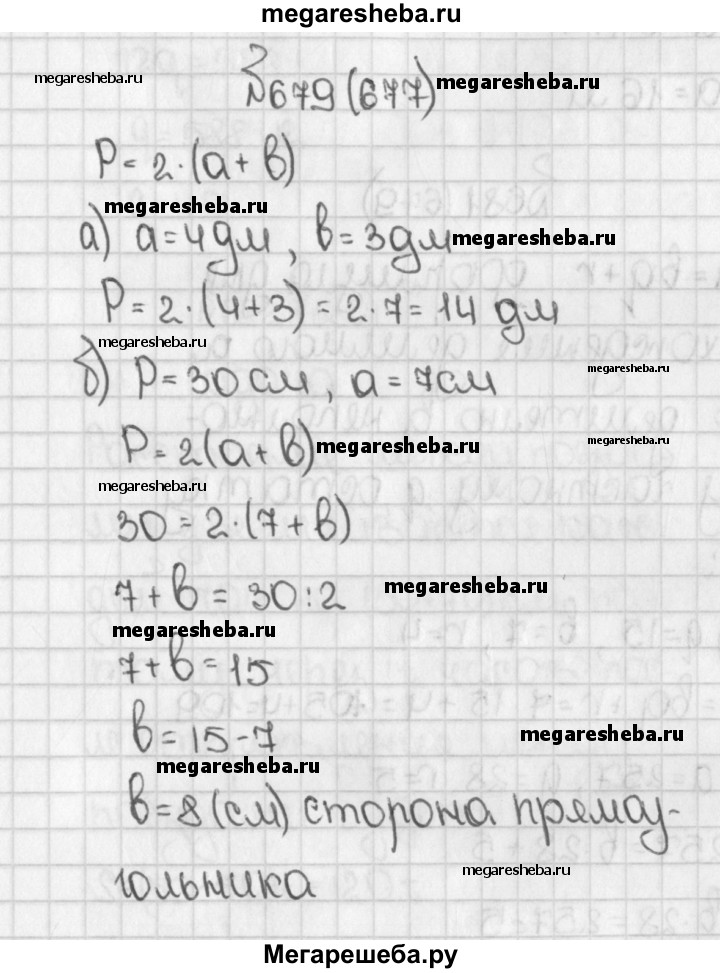 megaresheba.ru
megaresheba.ru №679 (677) megaresheba.ru
P = 2·(a + b)
megaresheba.ru
а) a = 4 дм, b = 3 дм megaresheba.ru
P = 2·(4+3) = 2·7 = 14 дм
megaresheba.ru
б) P = 30 см, a = 7 см megaresheba.ru
P = 2(a + b) megaresheba.ru megaresheba.ru
megaresheba.ru
30 = 2·(7 + b)
7 + b = 30:2 megaresheba.ru
megaresheba.ru
7 + b = 15
b = 15 - 7 megaresheba.ru
megaresheba.ru
b = 8 (см) сторона прямоу-
гольника megaresheba.ru
Мегарешеба.ру